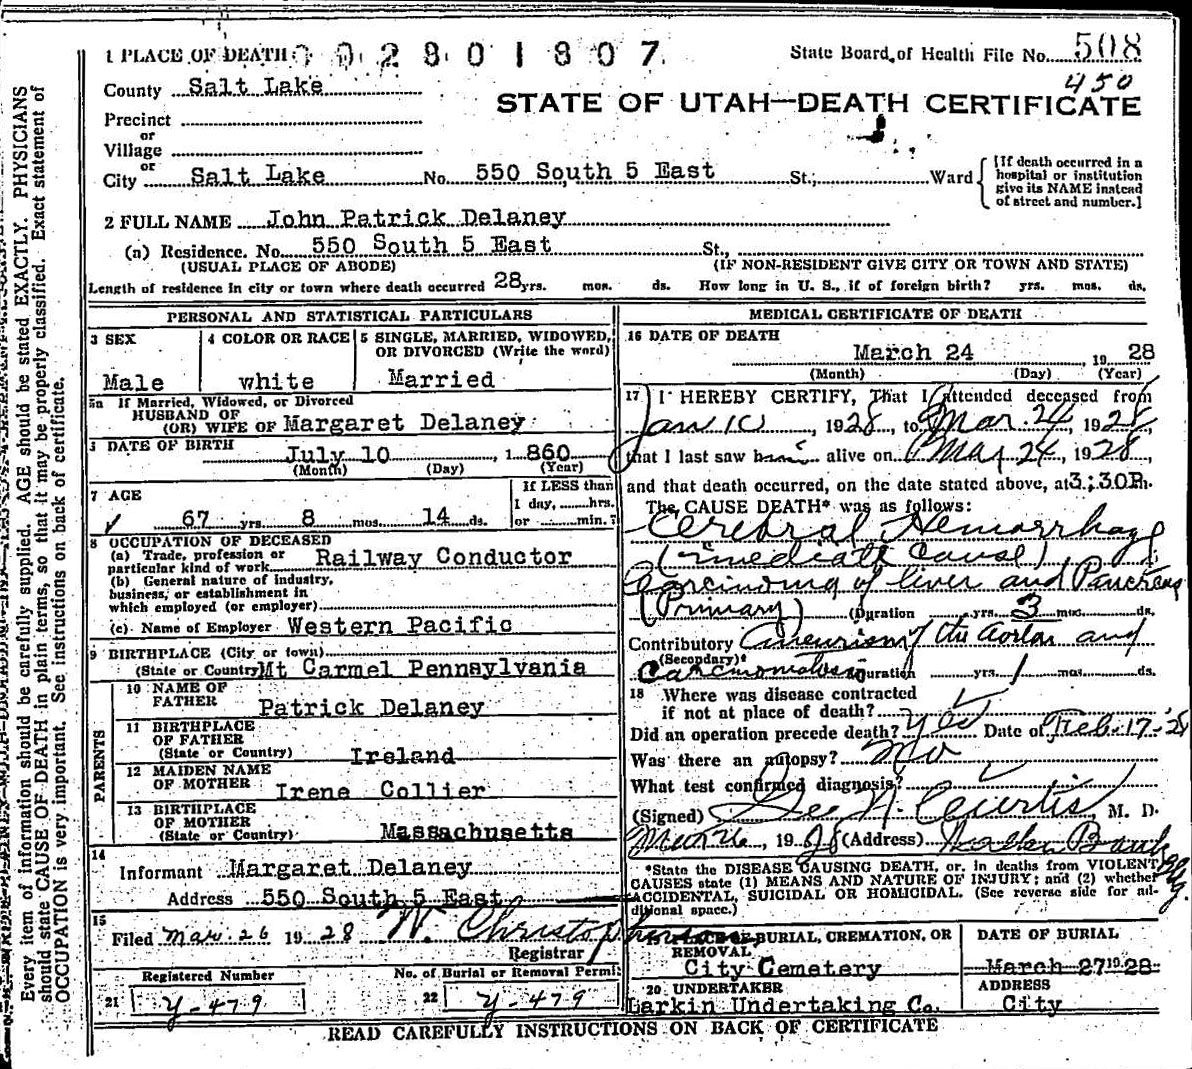 1 PLACE OF DEATH 002801807
State Board of Health File No. 508
450
County Salt Lake
STATE OF UTAH—DEATH CERTIFICATE
Precinct
or
Village
or
City Salt Lake No. 550 South 5 East St.; Ward
[If death occurred in a hospital or institution give its NAME instead of street and number.]
2 FULL NAME John Patrick Delaney
(a) Residence. No. 550 South 5 East St.,
(USUAL PLACE OF ABODE) (IF NON-RESIDENT GIVE CITY OR TOWN AND STATE)
Length of residence in city or town where death occurred 28 yrs. mos. ds. How long in U. S., if of foreign birth? yrs. mos. ds.
PERSONAL AND STATISTICAL PARTICULARS
3 SEX
Male
4 COLOR OR RACE
white
5 SINGLE, MARRIED, WIDOWED, OR DIVORCED (Write the word)
Married
5a If Married, Widowed, or Divorced
HUSBAND OF
(OR) WIFE OF Margaret Delaney
DATE OF BIRTH
July 10, 1860
(Month) (Day) (Year)
7 AGE
67 yrs. 8 mos. 14 ds.
If LESS than
1 day, hrs.
or min.?
8 OCCUPATION OF DECEASED
(a) Trade, profession or
particular kind of work Railway Conductor
(b) General nature of industry,
business, or establishment in
which employed (or employer)
(c) Name of Employer Western Pacific
9 BIRTHPLACE (City or town)
(State or Country) Mt Carmel Pennsylvania
PARENTS
10 NAME OF
FATHER Patrick Delaney
11 BIRTHPLACE
OF FATHER
(State or Country) Ireland
12 MAIDEN NAME
OF MOTHER Irene Collier
13 BIRTHPLACE
OF MOTHER
(State or Country) Massachusetts
14
Informant Margaret Delaney
Address 550 South 5 East
15
Filed Mar. 26 1928 W. Christopherson
Registrar
Registered Number
21 Y-479
No. of Burial or Removal Permit
22 Y-479
MEDICAL CERTIFICATE OF DEATH
16 DATE OF DEATH
March 24, 1928
(Month) (Day) (Year)
17 I HEREBY CERTIFY, That I attended deceased from
Jan 10, 1928, to Mar. 24, 1928,
that I last saw him alive on Mar 24, 1928,
and that death occurred, on the date stated above, at 3:30P.m.
The CAUSE DEATH* was as follows:
Cerebral Hemorrhage
(imediate cause)
Carcinoma of liver and Pancreas
(Primary) (Duration yrs. 3 mos. ds.
Contributory Aneurism of the Aorta and
(Secondary)*
Carcinomatosis Duration yrs. 1 mos. ds.
18 Where was disease contracted
if not at place of death?
Did an operation precede death? yes Date of Feb-17-28
Was there an autopsy? No
What test confirmed diagnosis?
(Signed) Geo N. Curtis, M. D.
Mar 26, 1928 (Address) Walker Bank Bldg.
*State the DISEASE CAUSING DEATH, or, in deaths from VIOLENT
CAUSES state (1) MEANS AND NATURE OF INJURY; and (2) whether
ACCIDENTAL, SUICIDAL OR HOMICIDAL. (See reverse side for additional space.)
19 PLACE OF BURIAL, CREMATION, OR
REMOVAL
City Cemetery
DATE OF BURIAL
March 27 1928
20 UNDERTAKER
Larkin Undertaking Co.
ADDRESS
City
READ CAREFULLY INSTRUCTIONS ON BACK OF CERTIFICATE
Every item of information should be carefully supplied. AGE should be stated EXACTLY. PHYSICIANS
should state CAUSE OF DEATH in plain terms, so that it may be properly classified. Exact statement of
OCCUPATION is very important. See instructions on back of certificate.